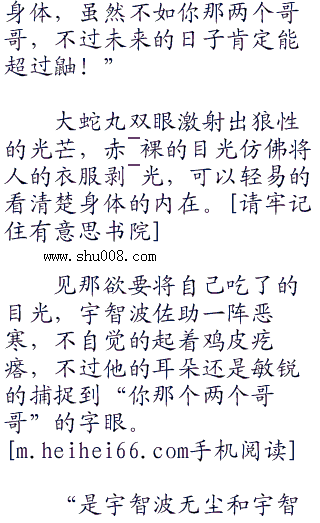 身体，虽然不如你那两个哥
哥，不过未来的日子肯定能
超过鼬！”
大蛇丸双眼激射出狼性
的光芒，赤¯裸的目光仿佛将
人的衣服剥¯光，可以轻易的
看清楚身体的内在。[请牢记
住有意思书院]
www.shu008.com
见那欲要将自己吃了的
目光，宇智波佐助一阵恶
寒，不自觉的起着鸡皮疙
瘩，不过他的耳朵还是敏锐
的捕捉到“你那个两个哥
哥”的字眼。
[m.heihei66.com手机阅读]
“是宇智波无尘和宇智